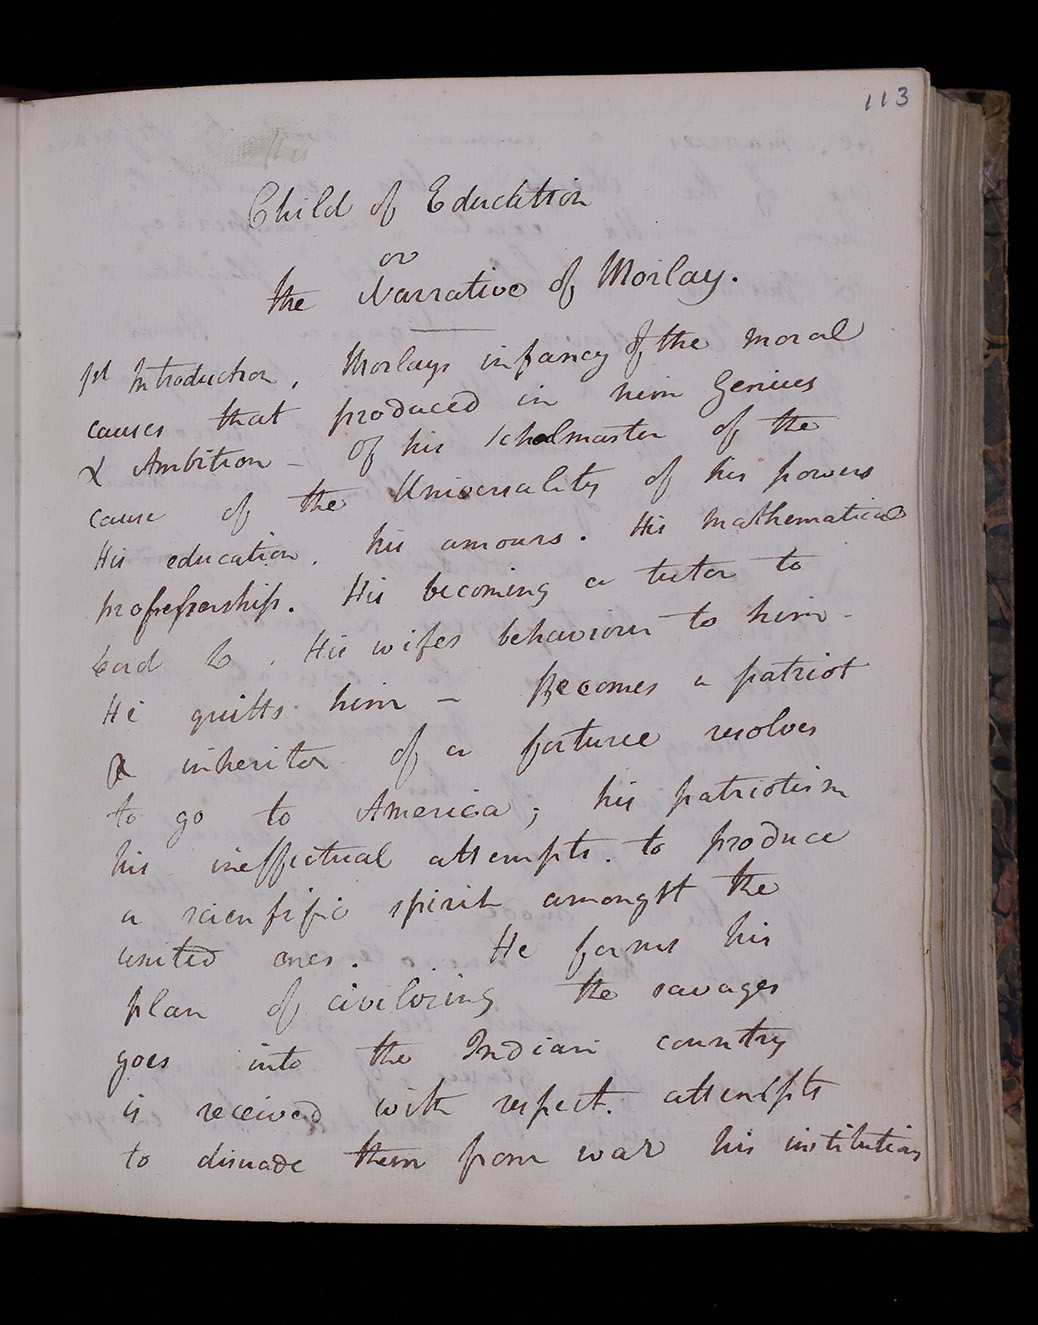 113
Child of Education
or
the Narrative of Morlay.
1st Introduction, Morlays infancy of the moral
causes that produced in him Genius
& Ambition - Of his Scholmaster of the
cause of the Universality of his powers
His education, his amours. His Mathematical
professorship. His becoming a tutor to
Lord . His wifes behaviour to him -
He quitts him - Becomes a patriot
inheritor of a fortune resolves
to go to America; his patriotism
his ineffectual attempts. to produce
a scientific spirit amongst the
united ones. He forms his
plan of civilizing the savages
goes into the Indian country
is received with respect. attempts
to disuade them from war his institution